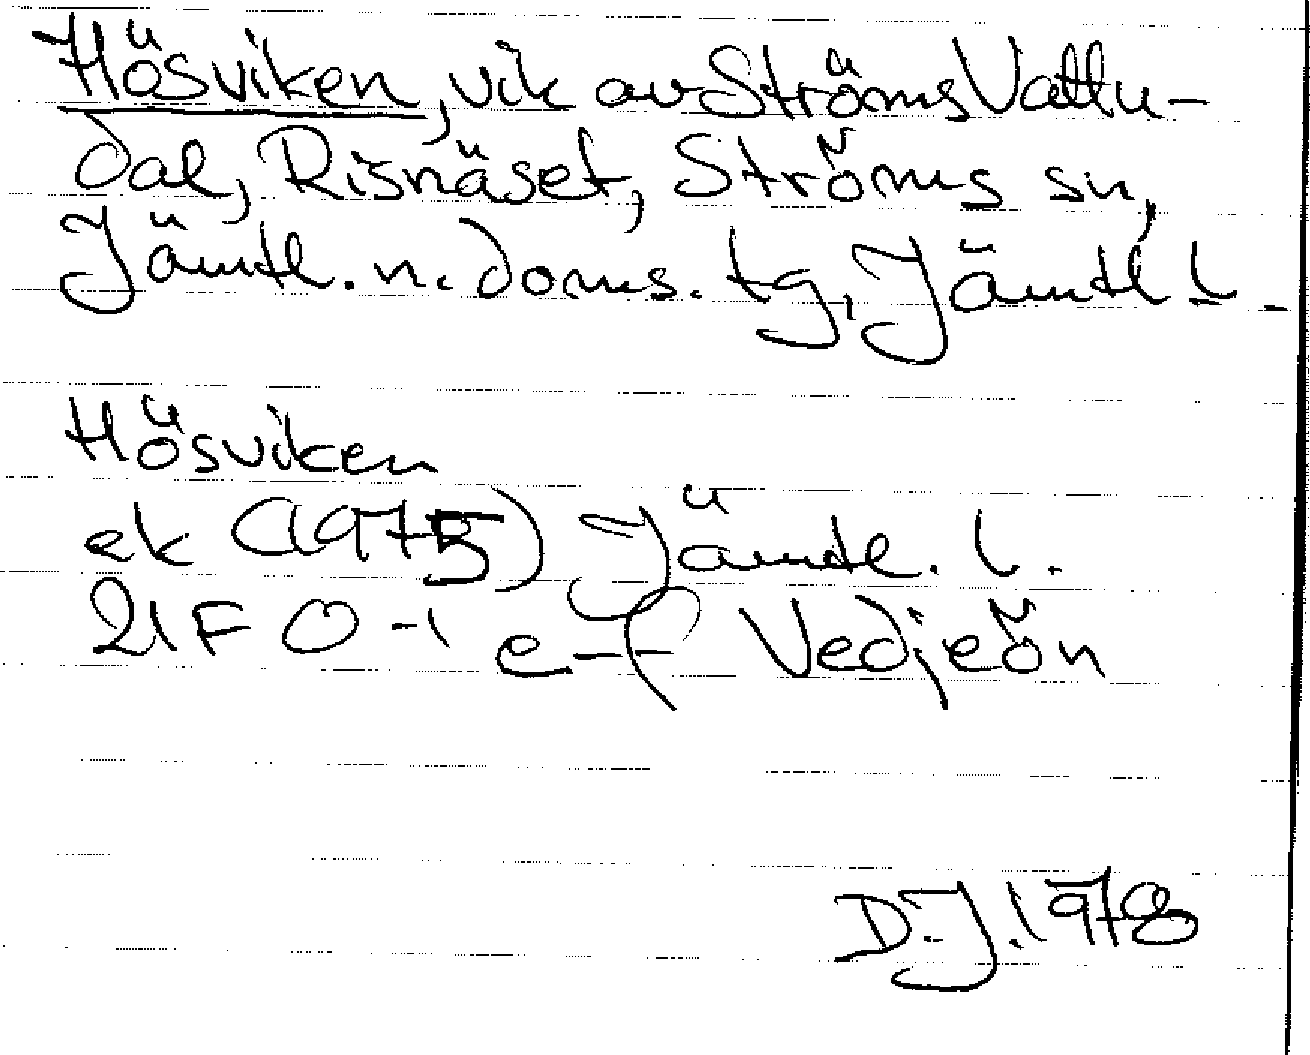 Hösviken, vik av Ströms Vattu-
dal, Risnäset, Ströms sn,
Jämtl. n. doms. tg, Jämtl l.
Hösviken
ek (1975) Jämtl. l.
21F 0-1 e-f Vedjeön
D.J. 1978